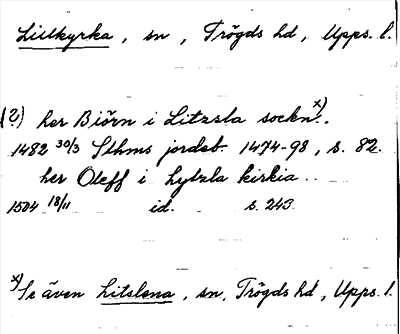 Lillkyrka, sn, Trögds hd, Upps. l.
(?) her Biörn i Litzsla sockn x)..
1482 30/3 Sthms jordeb. 1474-98, s. 82.
her Oleff i Lytzla kirkia..
1504 18/11 id. s. 243
x) Se även Litslena, sn, Trögds hd, Upps. l.